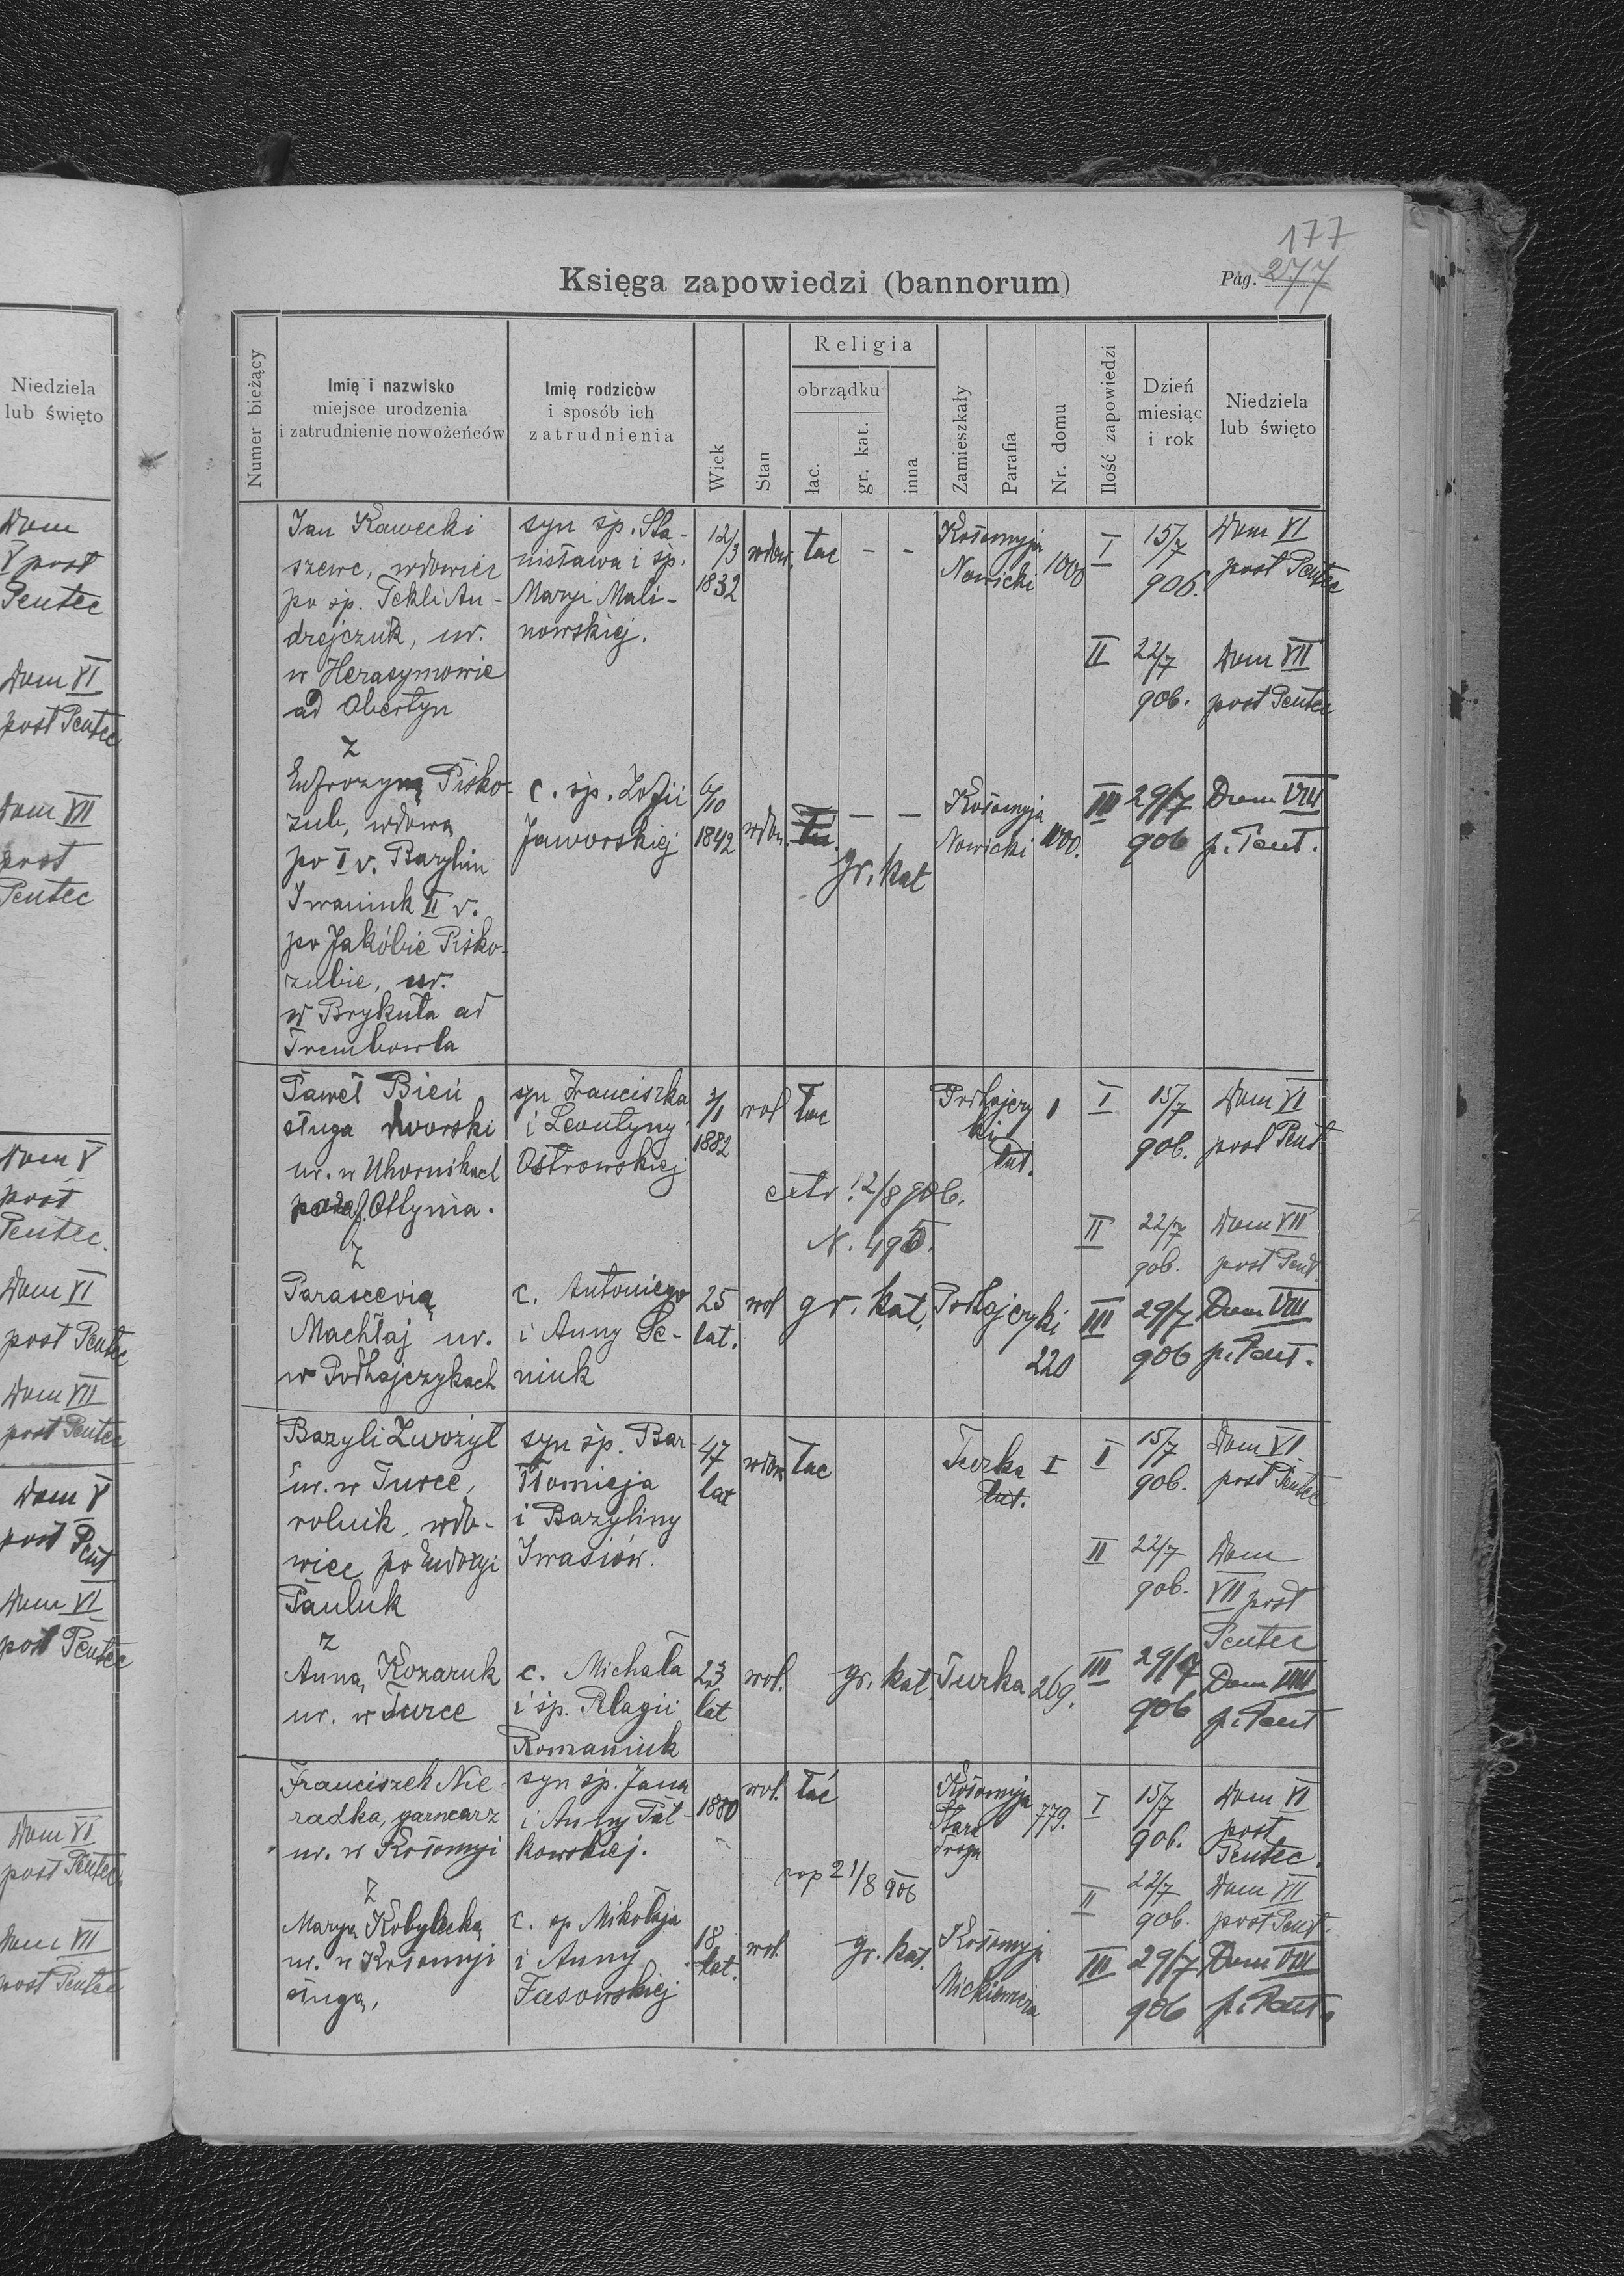 177
Księga zapowiedzi (bannorum)
Pag. 277
Niedziela
lub święto
Dom
V post
Pentec
Dom VI
post Pentec
Dom VII
post
Pentec
Dom V
post
Pentec.
Dom VI
post Pentec
Dom VII
post Pentec
Dom V
post Pent
Dom VI
post Pentec
Dom VI
post Pentec.
Dom VII
post Pentec
Numer bieżący
Imię i nazwisko
miejsce urodzenia
i zatrudnienie nowożeńców
Imię rodziców
i sposób ich
zatrudnienia
Wiek
Stan
Religia
obrządku
łac.
gr. kat.
inna
Zamieszkały
Parafia
Nr. domu
Ilość zapowiedzi
Dzień
miesiąc
i rok
Niedziela
lub święto
Jan Kawecki
szewc, wdowiec
po śp. Tekli An-
drejczuk, ur.
w Herasymowie
ad Obertyn
syn śp. Sta-
nisława i śp.
Maryi Mali-
nowskiej.
12/3
1832
wdow.
łac
-
-
Kołomyja
Nowicki
1000
I
15/7
906.
Dom VI
post Pentec
II
22/7
906.
Dom VII
post Pentec
z
Eufrozyną Pisko-
zub, wdową
po I v. Bazylim
Iwaniuk II v.
po Jakóbie Pisko-
zubie, ur.
w Brykuła ad
Trembowla
c. śp. Zofii
Jaworskiej
6/10
1842
wdow.
-
-
gr. kat
Kołomyja
Nowicki
1000.
III
29/7
906
Dom VIII
p. Pent.
Paweł Bień
sługa dworski
ur. w Uhornikach
paraf. Ottynia.
syn Franciszka
i Leontyny
Ostrowskiej
1882
wol
łac
Podhajczy
ki
tut.
1
I
15/7
906.
Dom VI
post Pent
2/8 906.
N. 490.
II
22/7
906.
Dom VII
post Pent.
z
Parascevią
Machłaj ur.
w Podhajczykach
c. Antoniego
i Anny Se-
niuk
25
lat.
wol
gr. kat.
Podhajczyki
220
III
29/7
906
Dom VIII
p. Pent.
Bazyli Zwożył
ur. w Turce,
rolnik, wdo-
wiec po Eudoxyi
Pauluk
syn śp. Bar-
tłomieja
i Bazyliny
Iwasiów.
47
lat
wdow
łac
Turka
tut.
I
I
15/7
906.
Dom VI
post Pentec
II
22/7
906.
Dom
VII post
Pentec
z
Anną Kozaruk
ur. w Turce
c. Michała
i śp. Pelagii
Romaniuk
23
lat
wol.
gr. kat.
Turka
269.
III
29/7
906
Dom VIII
p. Pent
Franciszek Nie-
radka, garncarz
ur. w Kołomyi
syn śp. Jana
i Anny Pat-
kowskiej.
1880
wol.
łać
Kołomyja
Stara
droga
779.
I
15/7
906.
Dom VI
post
Pentec.
21/8 906
II
22/7
906.
Dom VII
post Pent.
z
Maryą Kobylecką
ur. w Kołomyi
sługą,
c. śp Mikołaja
i Anny
Fasowskiej
18
lat.
wol.
gr. kat.
Kołomyja
Mickiewicza
III
29/7
906
Dom VIII
p. Pent.